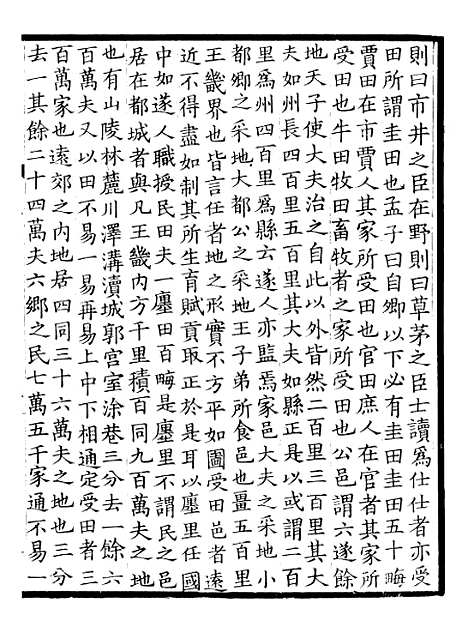 則曰市井之臣在野則曰草茅之臣士讀爲仕仕者亦受
田所謂圭田也孟子曰自卿以下必有圭田圭田五十畮
賈田在市賈人其家所受田也官田庶人在官者其家所
受田也牛田牧田畜牧者之家所受田也公邑謂六遂餘
地天子使大夫治之自此以外皆然二百里三百里其大
夫如州長四百里五百里其大夫如縣正是以或謂二百
里爲州四百里爲縣云遂人亦監焉家邑大夫之采地小
都卿之采地大都公之采地王子弟所食邑也畺五百里
王畿界也皆言任者地之形實不方平如圖受田邑者遠
近不得盡如制其所生育賦貢取正於是耳以廛里任國
中如遂人職授民田夫一廛田百畮是廛里不謂民之邑
居在都城者與凡王畿內方千里積百同九百萬夫之地
也有山陵林麓川澤溝瀆城郭宫室涂巷三分去一餘六
百萬夫又以田不易一易再易上中下相通定受田者三
百萬家也遠郊之內地居四同三十六萬夫之地也三分
去一其餘二十四萬夫六鄉之民七萬五千家通不易一